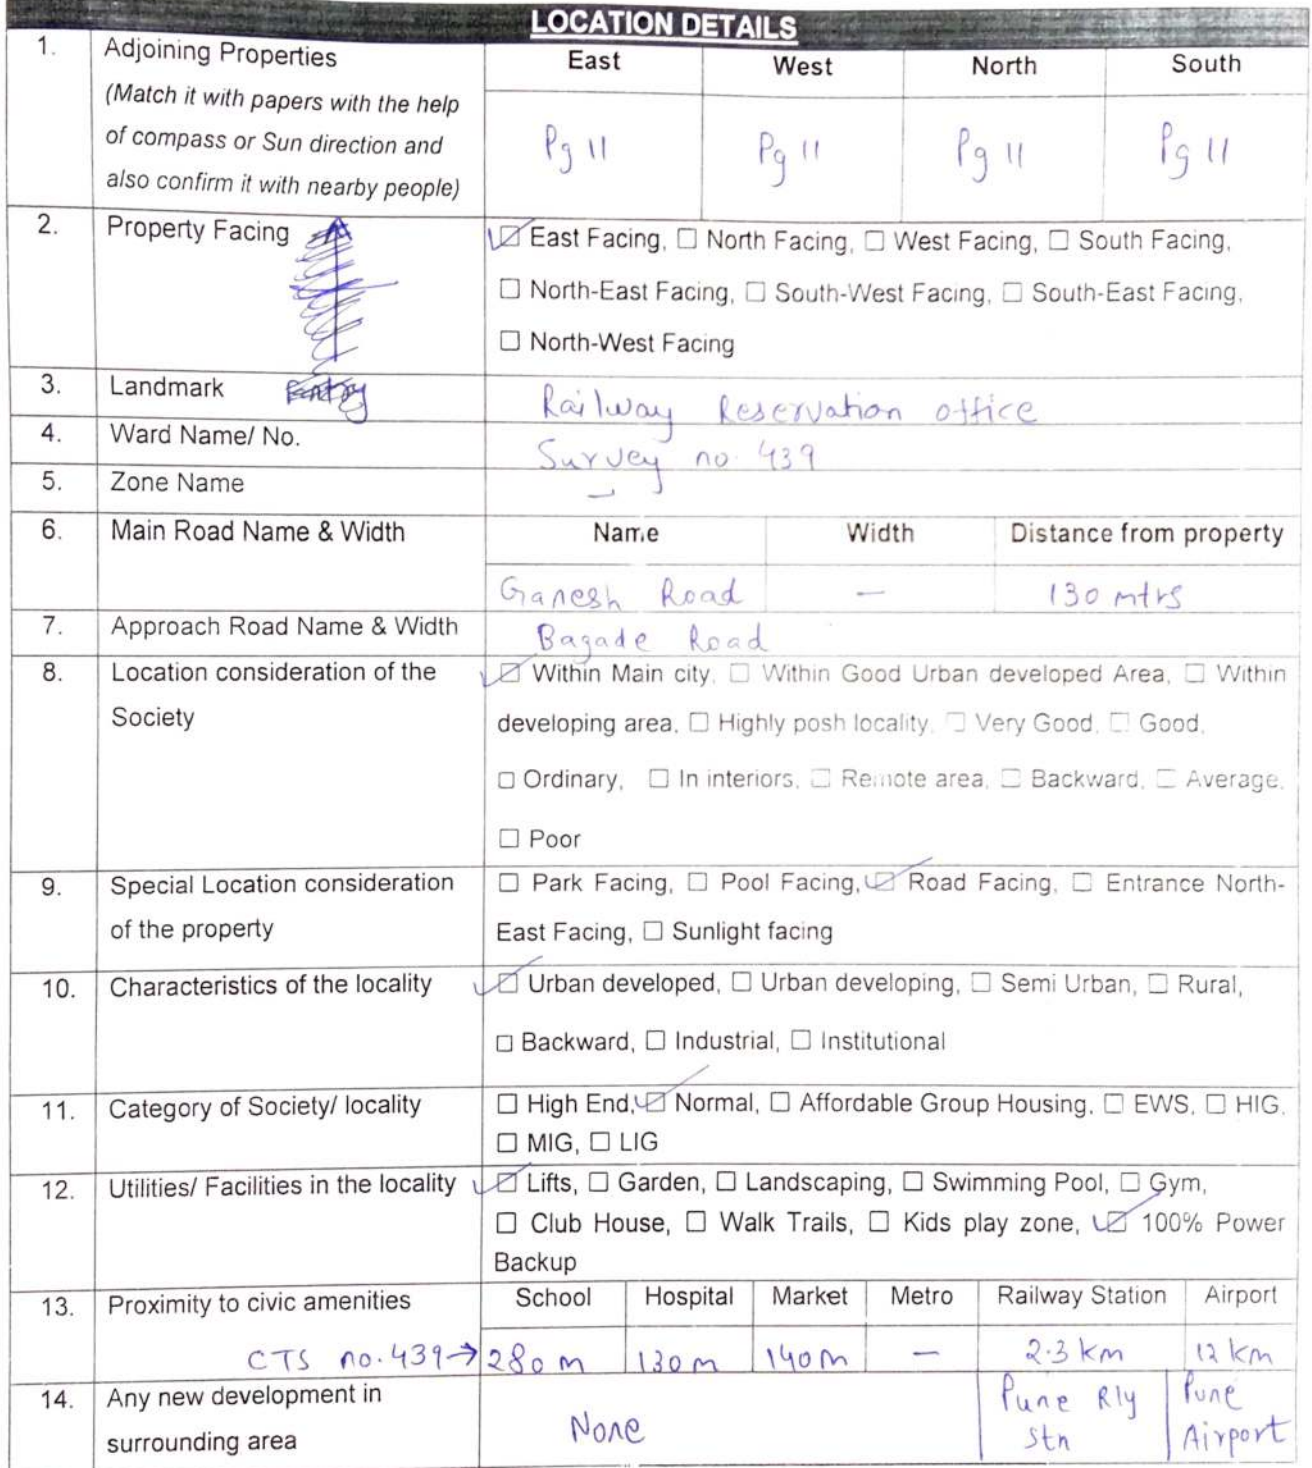 LOCATION DETAILS
1. Adjoining Properties East West North South
(Match it with papers with the help
of compass or Sun direction and
also confirm it with nearby people)
Pg 11 Pg 11 Pg 11 Pg 11
2. Property Facing ☑ East Facing, ☐ North Facing, ☐ West Facing, ☐ South Facing,
☐ North-East Facing, ☐ South-West Facing, ☐ South-East Facing,
☐ North-West Facing
3. Landmark Entry Railway Reservation office
4. Ward Name/ No. Survey no. 439
5. Zone Name –
6. Main Road Name & Width Name Width Distance from property
Ganesh Road – 130 mtrs
7. Approach Road Name & Width Bagade Road
8. Location consideration of the ☑ Within Main city, ☐ Within Good Urban developed Area, ☐ Within
Society developing area, ☐ Highly posh locality, ☐ Very Good, ☐ Good,
☐ Ordinary, ☐ In interiors, ☐ Remote area, ☐ Backward, ☐ Average,
☐ Poor
9. Special Location consideration ☐ Park Facing, ☐ Pool Facing, ☑ Road Facing, ☐ Entrance North-
of the property East Facing, ☐ Sunlight facing
10. Characteristics of the locality ☑ Urban developed, ☐ Urban developing, ☐ Semi Urban, ☐ Rural,
☐ Backward, ☐ Industrial, ☐ Institutional
11. Category of Society/ locality ☐ High End, ☑ Normal, ☐ Affordable Group Housing, ☐ EWS, ☐ HIG,
☐ MIG, ☐ LIG
12. Utilities/ Facilities in the locality ☑ Lifts, ☐ Garden, ☐ Landscaping, ☐ Swimming Pool, ☐ Gym,
☐ Club House, ☐ Walk Trails, ☐ Kids play zone, ☑ 100% Power
Backup
13. Proximity to civic amenities School Hospital Market Metro Railway Station Airport
CTS no. 439 → 280 m 130 m 140 m – 2.3 km 12 km
14. Any new development in
surrounding area
None
Pune Rly
Stn
Pune
Airport